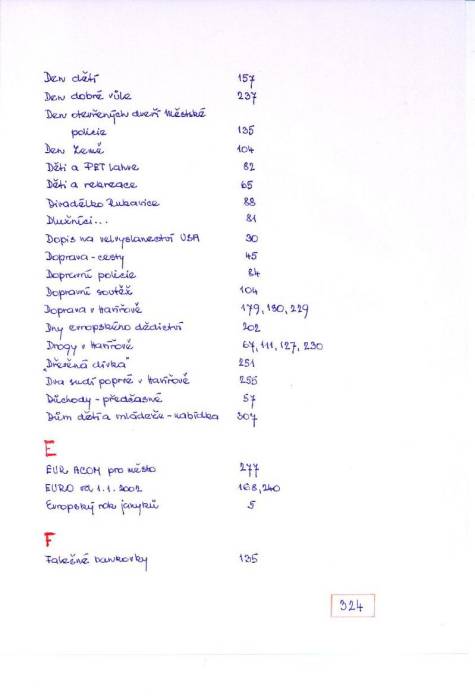 Den dětí 157
Den dobré vůle 237
Den otevřených dveří Městské
policie 135
Den Země 104
Děti a PET lahve 82
Děti a rekreace 65
Divadélko Rukavice 88
Dlužníci... 81
Dopis na velvyslanectví USA 30
Doprava - cesty 45
Dopravní policie 84
Dopravní soutěž 104
Doprava v Havířově 179, 180, 229
Dny evropského dědictví 202
Drogy v Havířově 67, 111, 127, 230
„Dřevěná dívka" 251
Dva sudí poprvé v Havířově 255
Důchody - předčasné 57
Dům dětí a mládeže - nabídka 307
E
EUR ACOM pro město 277
EURO od 1.1.2002 168, 240
Evropský rok jazyků 5
F
Falešné bankovky 135
324